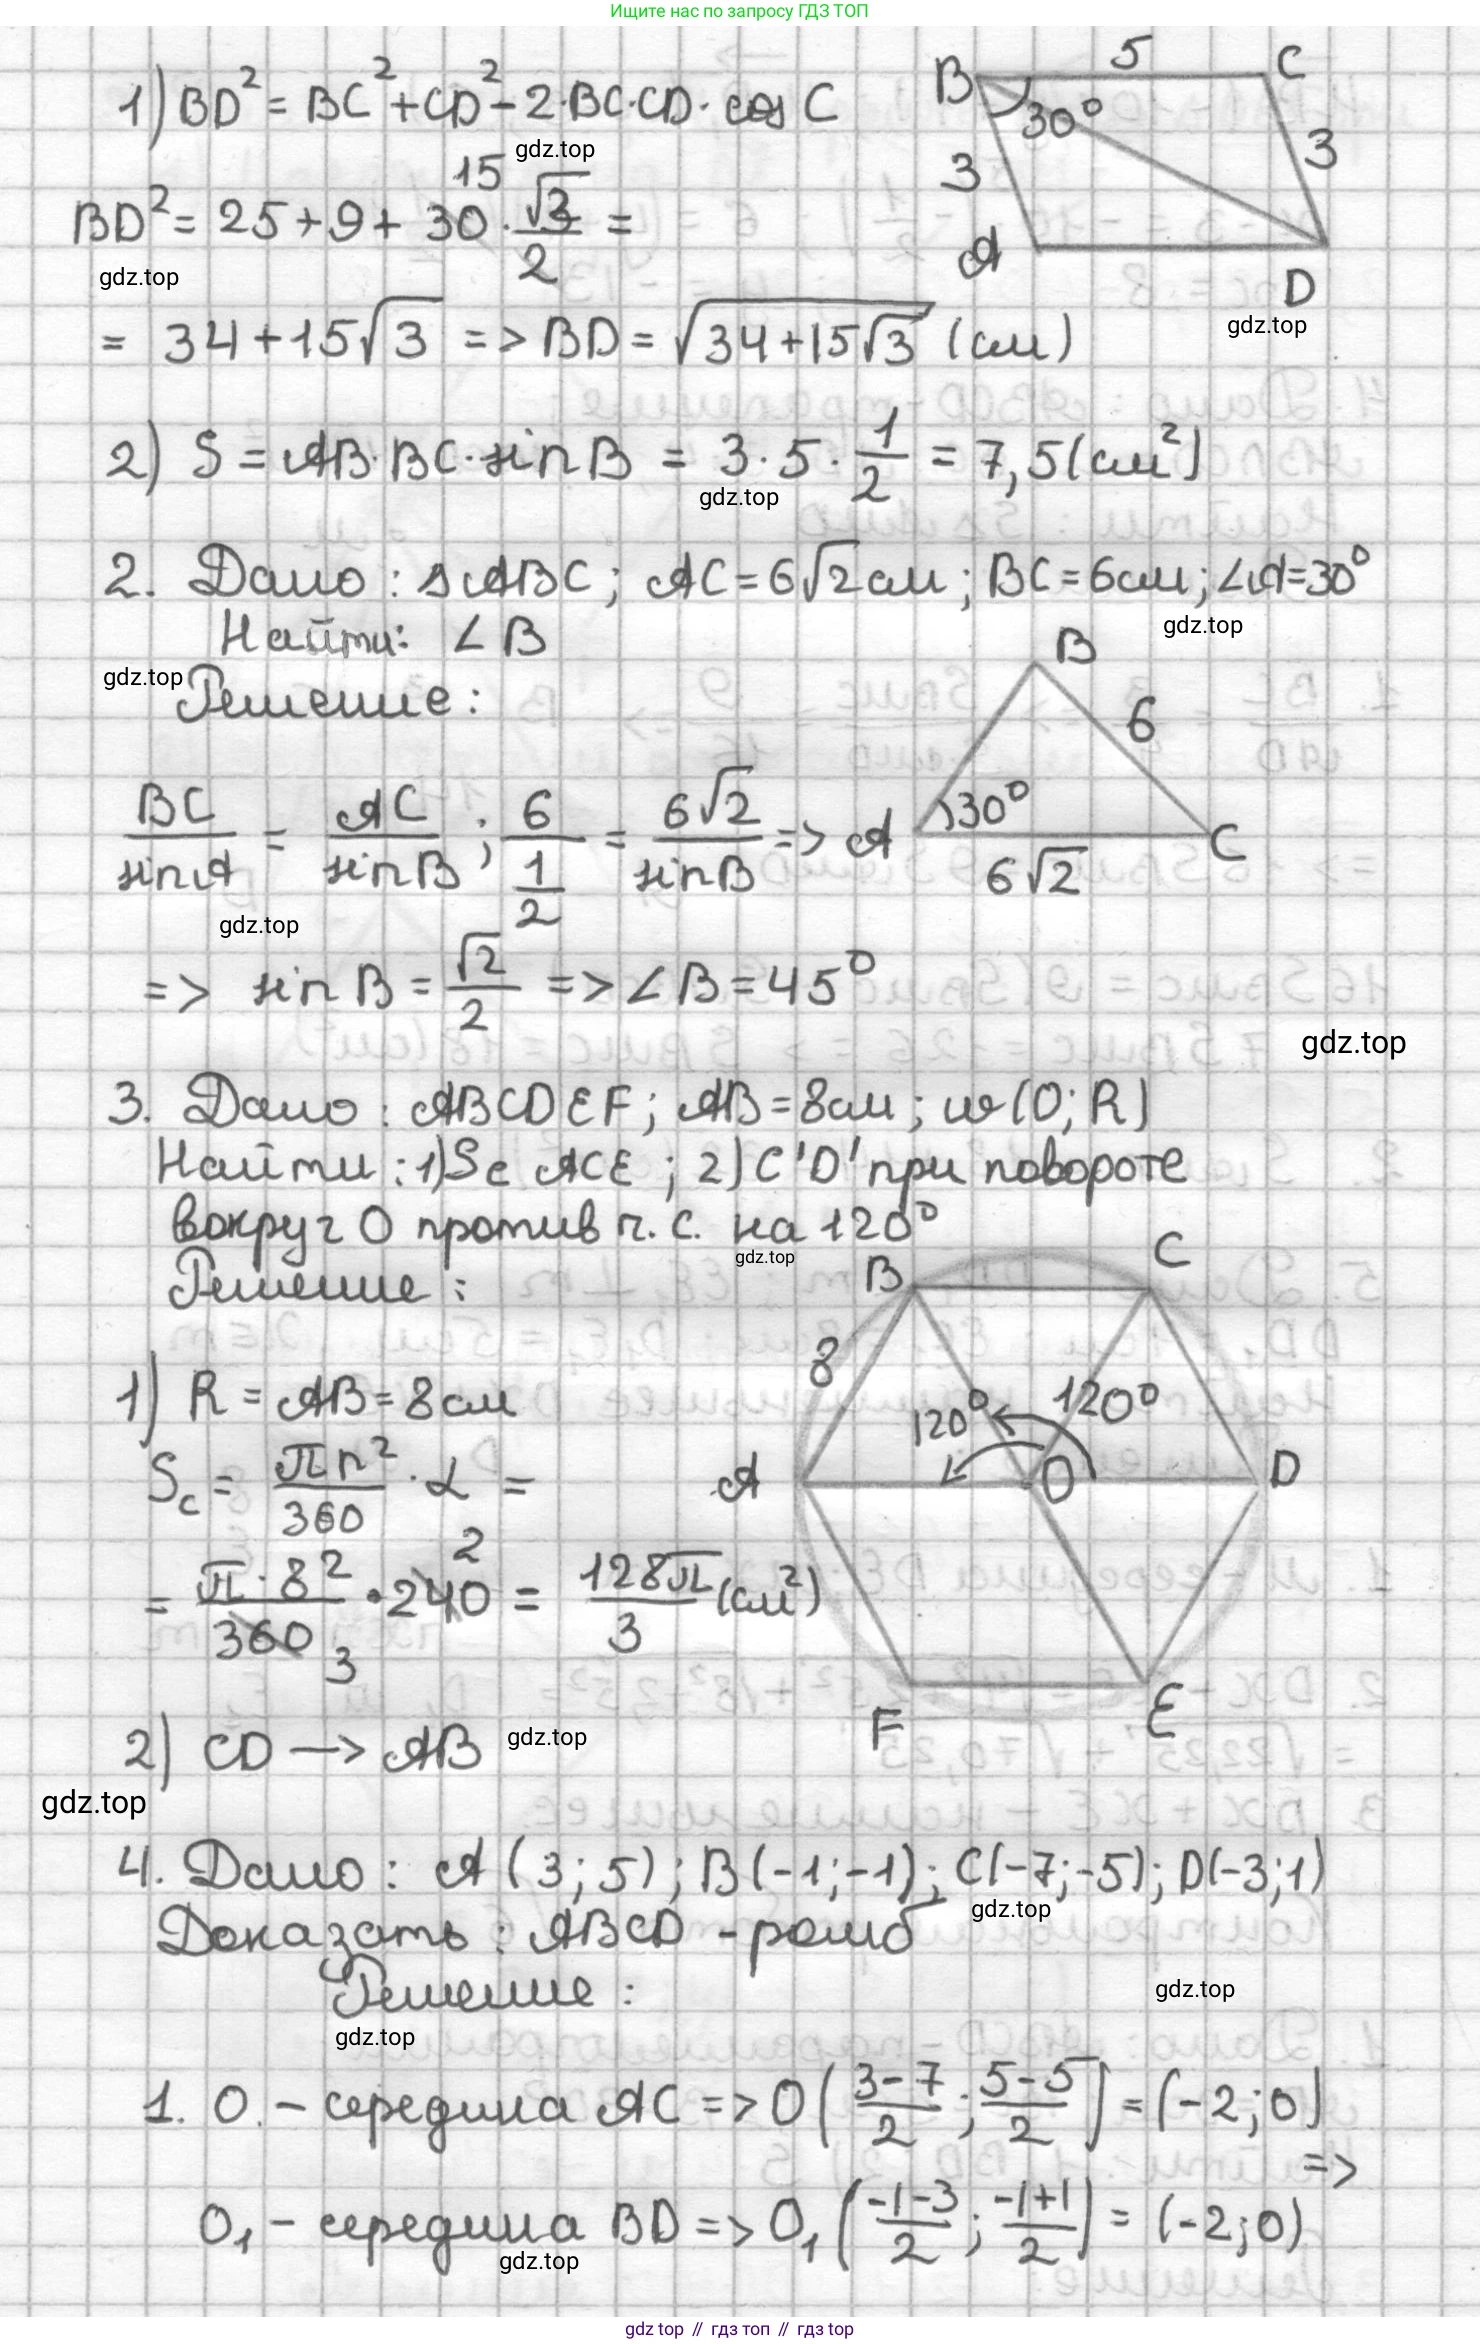 Ищите нас по запросу ГДЗ ТОП
1) BD² = BC² + CD² - 2·BC·CD·cos C
gdz.top
B 5 C
30°
3 3
A D
BD² = 25 + 9 + 30 · √3/2 =
15
gdz.top
= 34 + 15√3 => BD = √(34+15√3) (см)
gdz.top
2) S = AB·BC·sin B = 3·5·1/2 = 7,5 (см²)
gdz.top
2. Дано: ΔABC; AC = 6√2 см; BC = 6 см; ∠A = 30°
gdz.top
Найти: ∠B
gdz.top
Решение:
B
6
30°
A C
6√2
BC/sin A = AC/sin B ; 6/(1/2) = 6√2/sin B =>
gdz.top
=> sin B = √2/2 => ∠B = 45°
gdz.top
3. Дано: ABCDEF; AB = 8 см; w(O; R)
Найти: 1) Sс ACE; 2) C'D' при повороте
вокруг O против ч. с. на 120°
gdz.top
Решение:
B C
8
120° 120°
A O D
F E
1) R = AB = 8 см
Sc = πr²/360 · α =
= π·8²/360 · 240 = 128π/3 (см²)
2
3
2) CD → AB
gdz.top
gdz.top
4. Дано: A(3; 5); B(-1; -1); C(-7; -5); D(-3; 1)
gdz.top
Доказать: ABCD - ромб
gdz.top
Решение:
gdz.top
1. O - середина AC => O((3-7)/2; (5-5)/2) = (-2; 0)
=>
O₁ - середина BD => O₁((-1-3)/2; (-1+1)/2) = (-2; 0)
gdz.top
gdz.top // гдз топ // гдз top